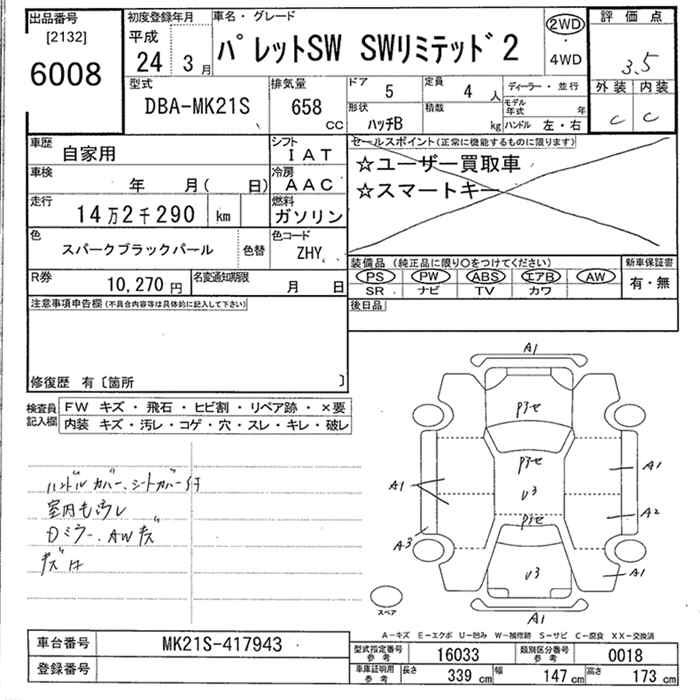 出品番号
[2132]
6008
初度登録年月
平成
24 3月
車名・グレード
パレットSW SWリミテッド2
2WD
・
4WD
評価点
3.5
外装 内装
C C
型式
DBA-MK21S
排気量
658
CC
ドア
5
定員
4 人
形状
ハッチB
積載
kg
ディーラー・並行
モデル年式 年
ハンドル 左・右
車歴
自家用
シフト
IAT
車検
年 月( 日)
冷房
AAC
走行
14万2千290 km
燃料
ガソリン
色
スパークブラックパール
色替
色コード
ZHY
R券
10,270円
名変通知期限
月 日
セールスポイント(正常に機能するものに限ります)
☆ユーザー買取車
☆スマートキー
装備品(純正品に限り○をつけてください)
PS PW ABS エアB AW
SR ナビ TV カワ
新車保証書
有・無
後日品
注意事項申告欄(不具合内容等は具体的に記入して下さい)
修復歴 有〔箇所 〕
検査員記入欄
FW キズ・飛石・ヒビ割・リペア跡・×要
内装 キズ・汚レ・コゲ・穴・スレ・キレ・破レ
ハンドルカバー、シートカバー付
室内もヨゴレ
Dミラー、AWキズ
キズ
A1
A1
A3
A1
A2
A1
A1
U3
U3
スペア
A-キズ E-エクボ U-凹み W-補修跡 S-サビ C-腐食 XX-交換済
車台番号
MK21S-417943
登録番号
型式指定番号
参考
16033
類別区分番号
参考
0018
車庫証明用
参考
長さ 339 cm
幅 147 cm
高さ 173 cm